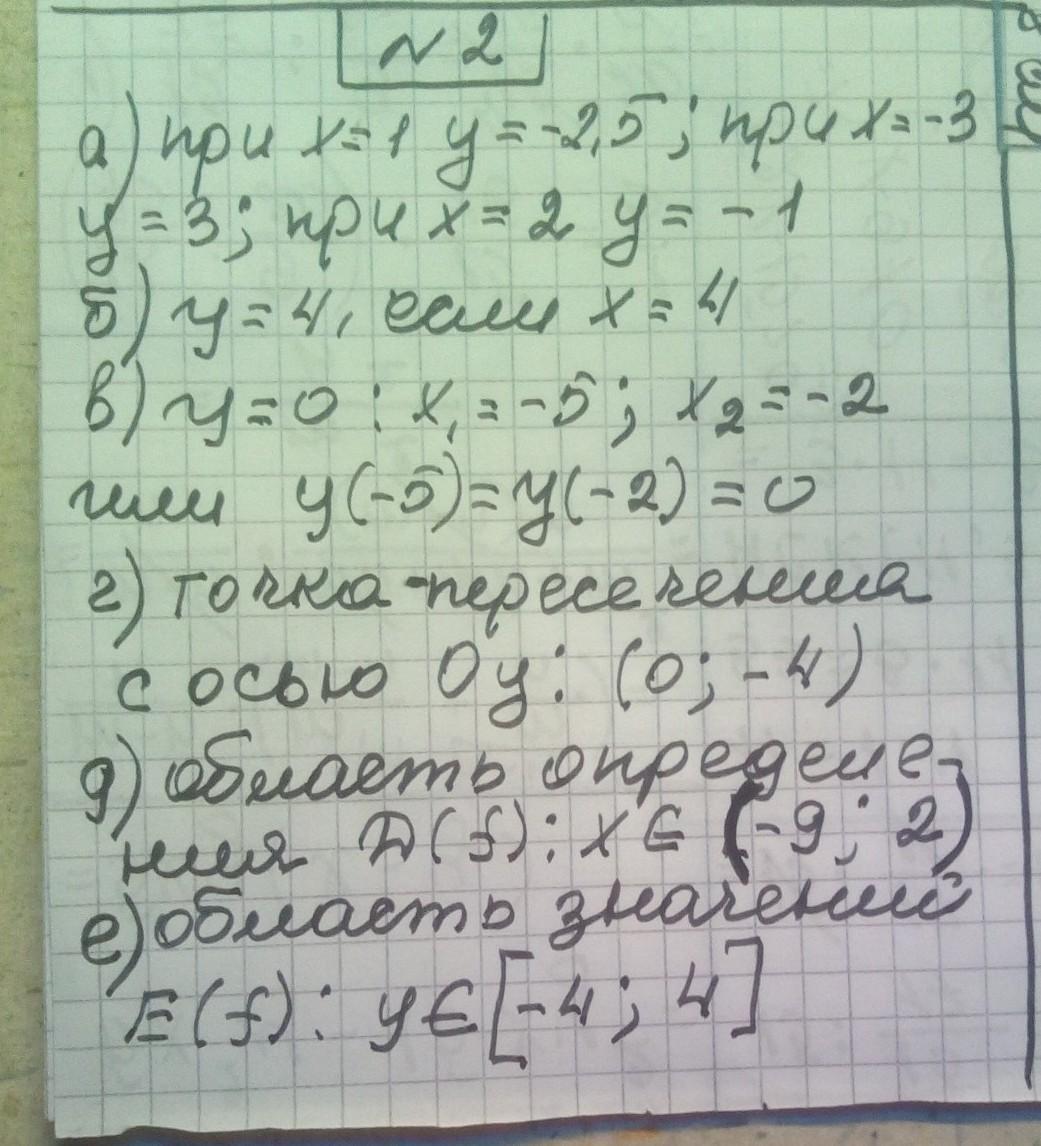 № 2
а) при x = 1 y = -2,5 ; при x = -3
y = 3; при x = 2 y = - 1
б) y = 4, если x = 4
в) y = 0 : x₁ = -5 ; x₂ = - 2
или y(-5) = y(-2) = 0
г) точка пересечения
с осью Oy: (0 ; - 4)
д) область определе-
ния D(f) : x ∈ (-9 ; 2)
е) область значений
E(f) : y ∈ [-4 ; 4]